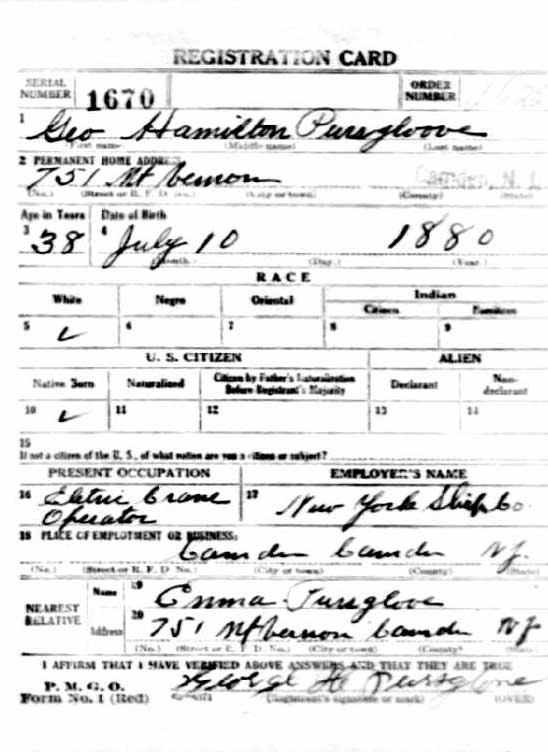 REGISTRATION CARD
SERIAL NUMBER 1670 ORDER NUMBER
1 Geo Hamilton Pursgloove
(First name) (Middle name) (Last name)
2 PERMANENT HOME ADDRESS
751 Mt Vernon Camden, N. J.
(No.) (Street or R. F. D. No.) (City or town) (County) (State)
Age in Years Date of Birth
3 38 4 July 10 1880
(Month.) (Day.) (Year.)
RACE
White Negro Oriental Indian
Citizen Noncitizen
5 ✓ 6 7 8 9
U. S. CITIZEN ALIEN
Native Born Naturalized Citizen by Father's Naturalization Before Registrant's Majority Declarant Non-declarant
10 ✓ 11 12 13 14
15
If not a citizen of the U. S., of what nation are you a citizen or subject?
PRESENT OCCUPATION EMPLOYER'S NAME
16 Eletric Crane 17 New York Ship Co.
Operator
18 PLACE OF EMPLOYMENT OR BUSINESS:
Camden Camden NJ
(No.) (Street or R. F. D. No.) (City or town) (County) (State)
NEAREST RELATIVE
Name 19 Emma Pursglove
Address 20 751 Mt Vernon Camden NJ
(No.) (Street or R. F. D. No.) (City or town) (County) (State)
I AFFIRM THAT I HAVE VERIFIED ABOVE ANSWERS AND THAT THEY ARE TRUE
P. M. G. O.
Form No. 1 (Red) George H Pursglove
(Registrant's signature or mark) (OVER)